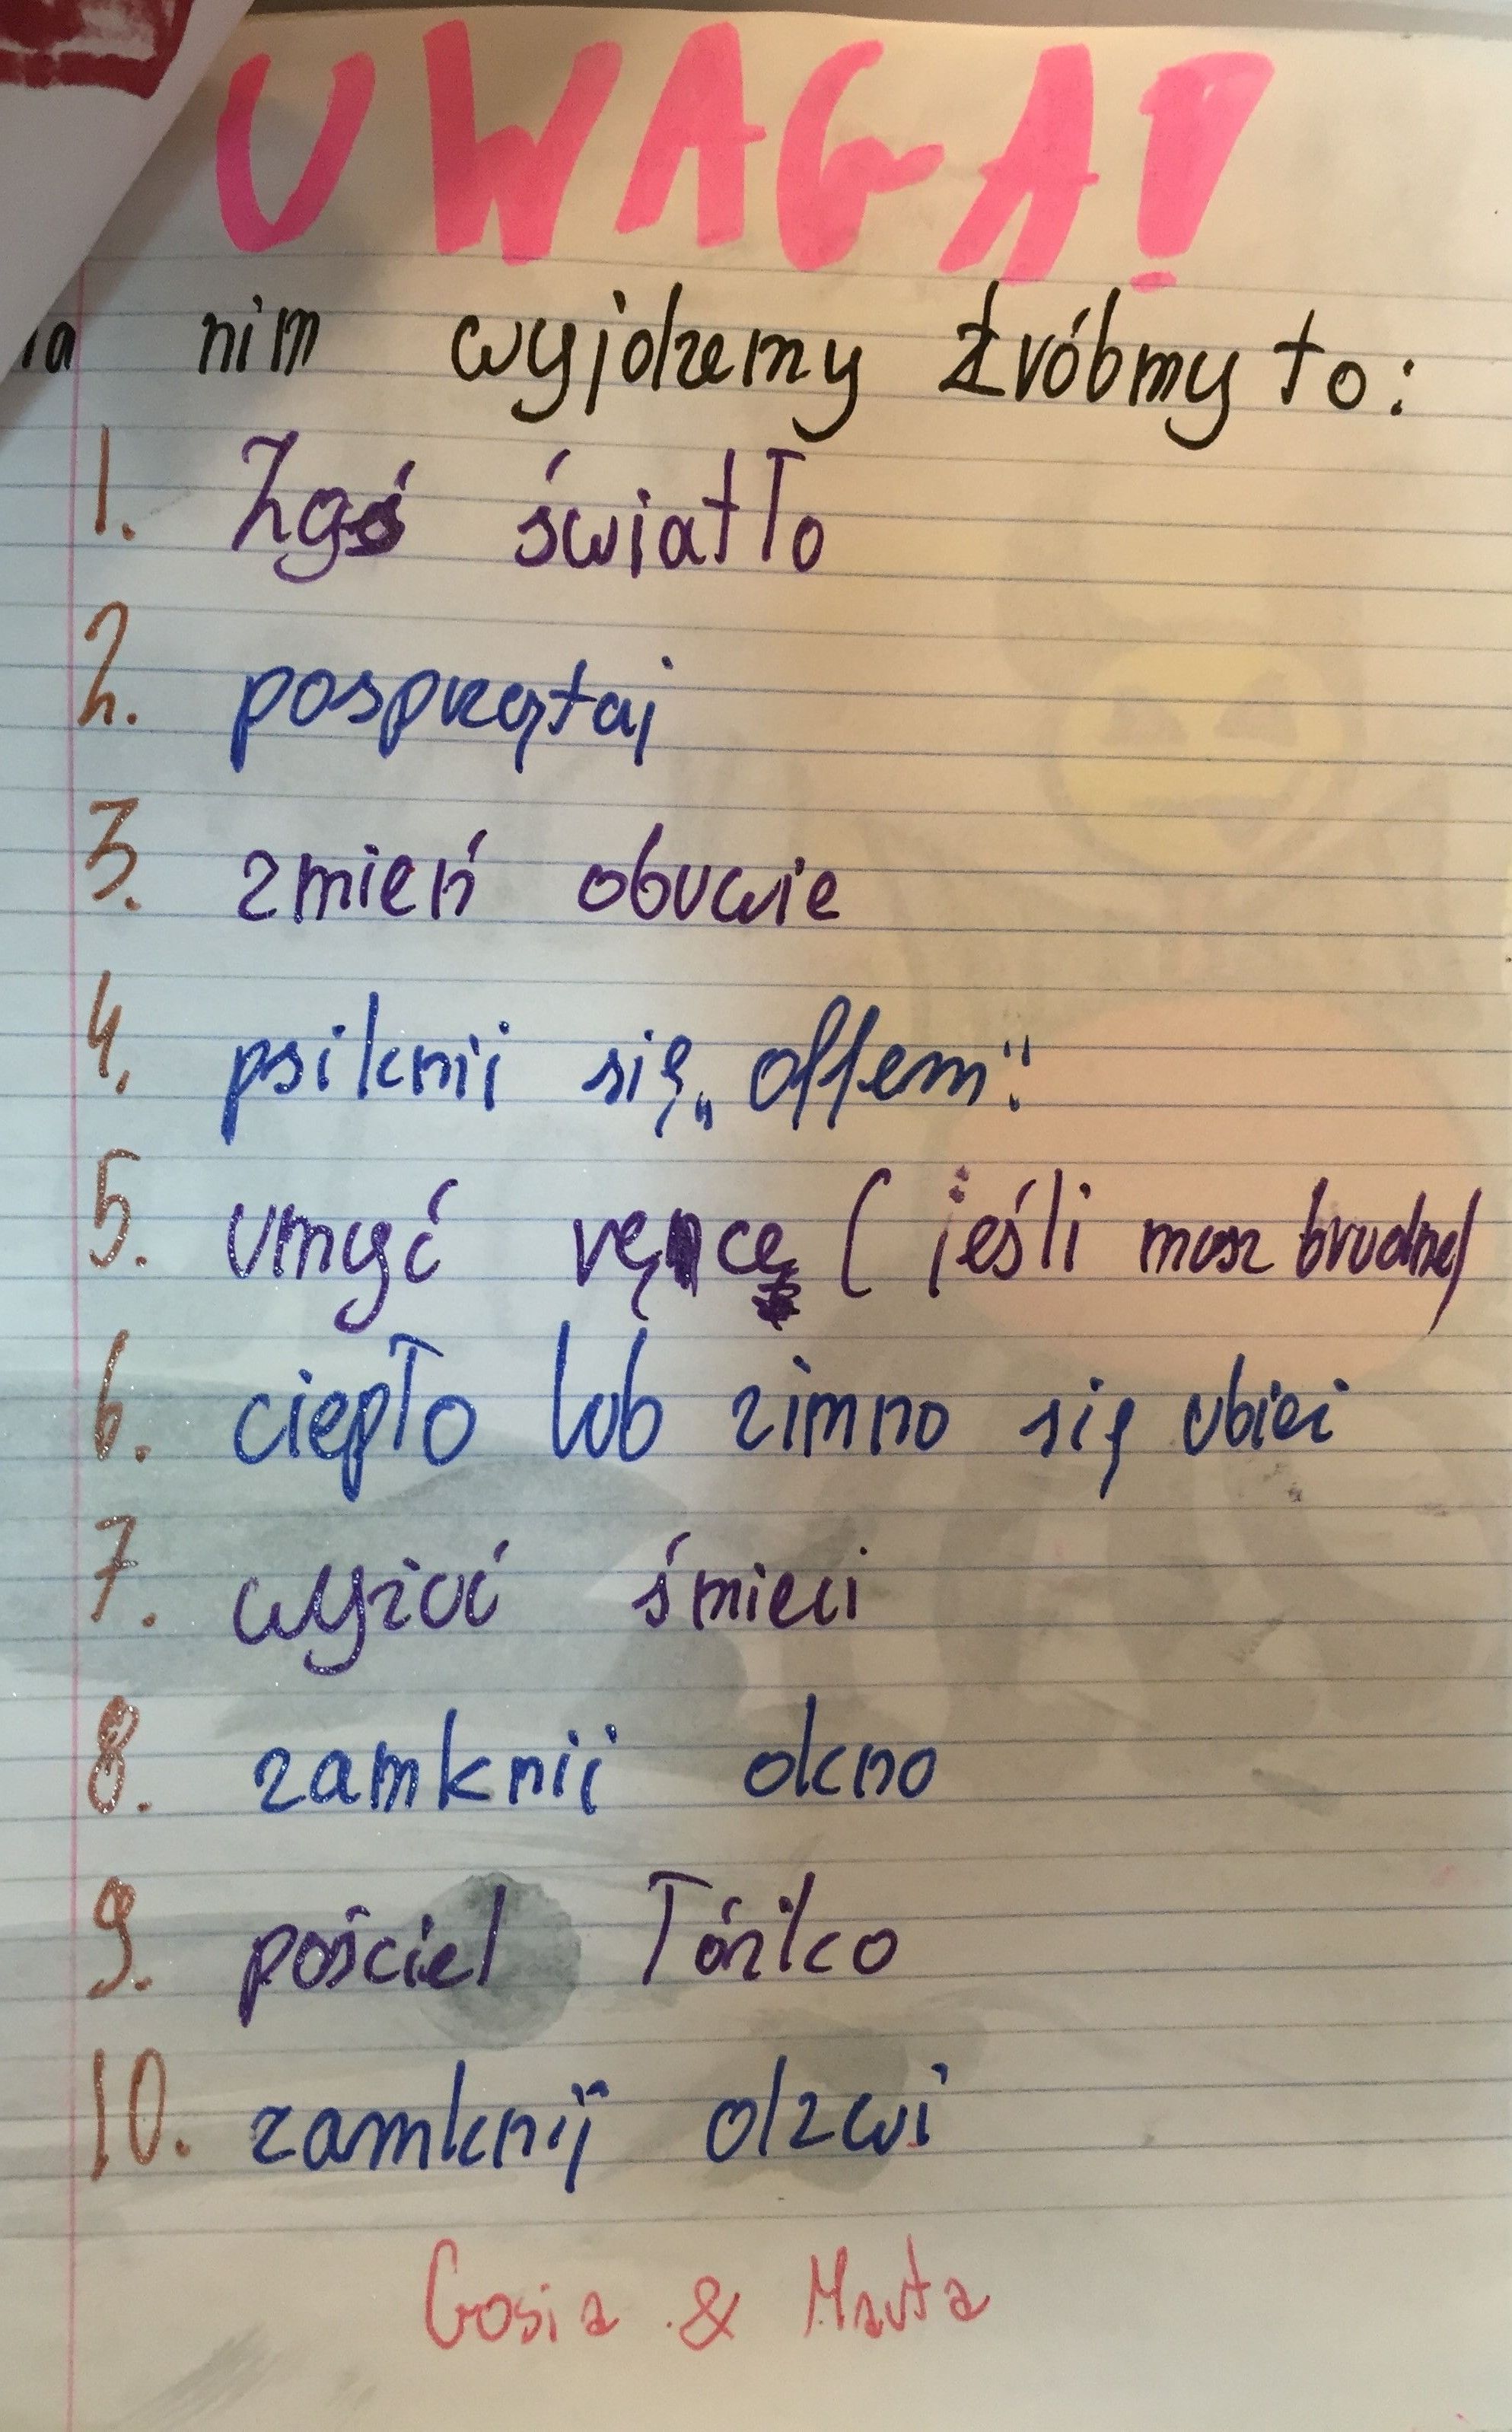 UWAGA!
nim wyjdzemy zróbmy to:
1. Zgś światło
2. posprzątaj
3. zmień obuwie
4. psiknij się „offem":
5. umyć ręce (jeśli masz brudne)
6. ciepło lub zimno się ubiej
7. wyzuć śmieci
8. zamknij okno
9. pościel łóżko
10. zamknij dzwi
Gosia & Marta